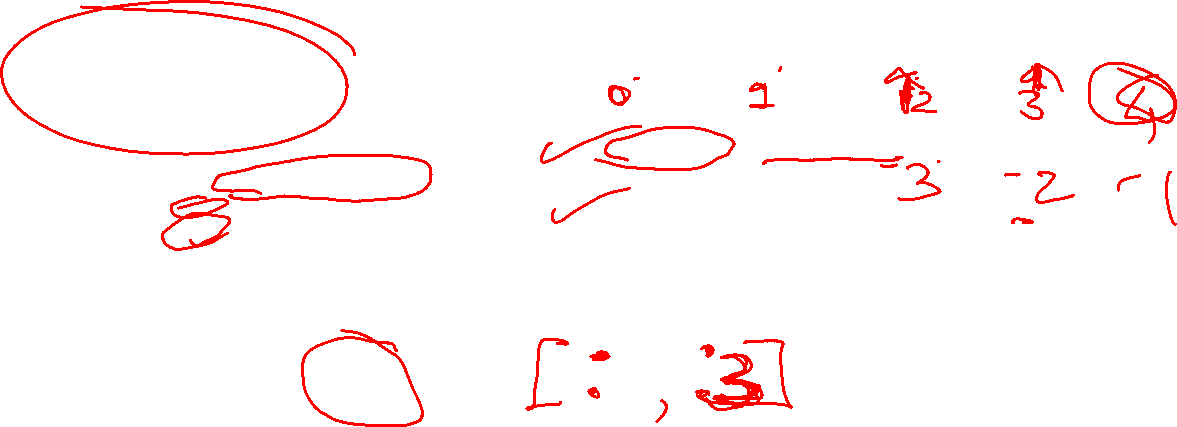 0 1 2 3 4
-3 -2 -1
[:, :3]